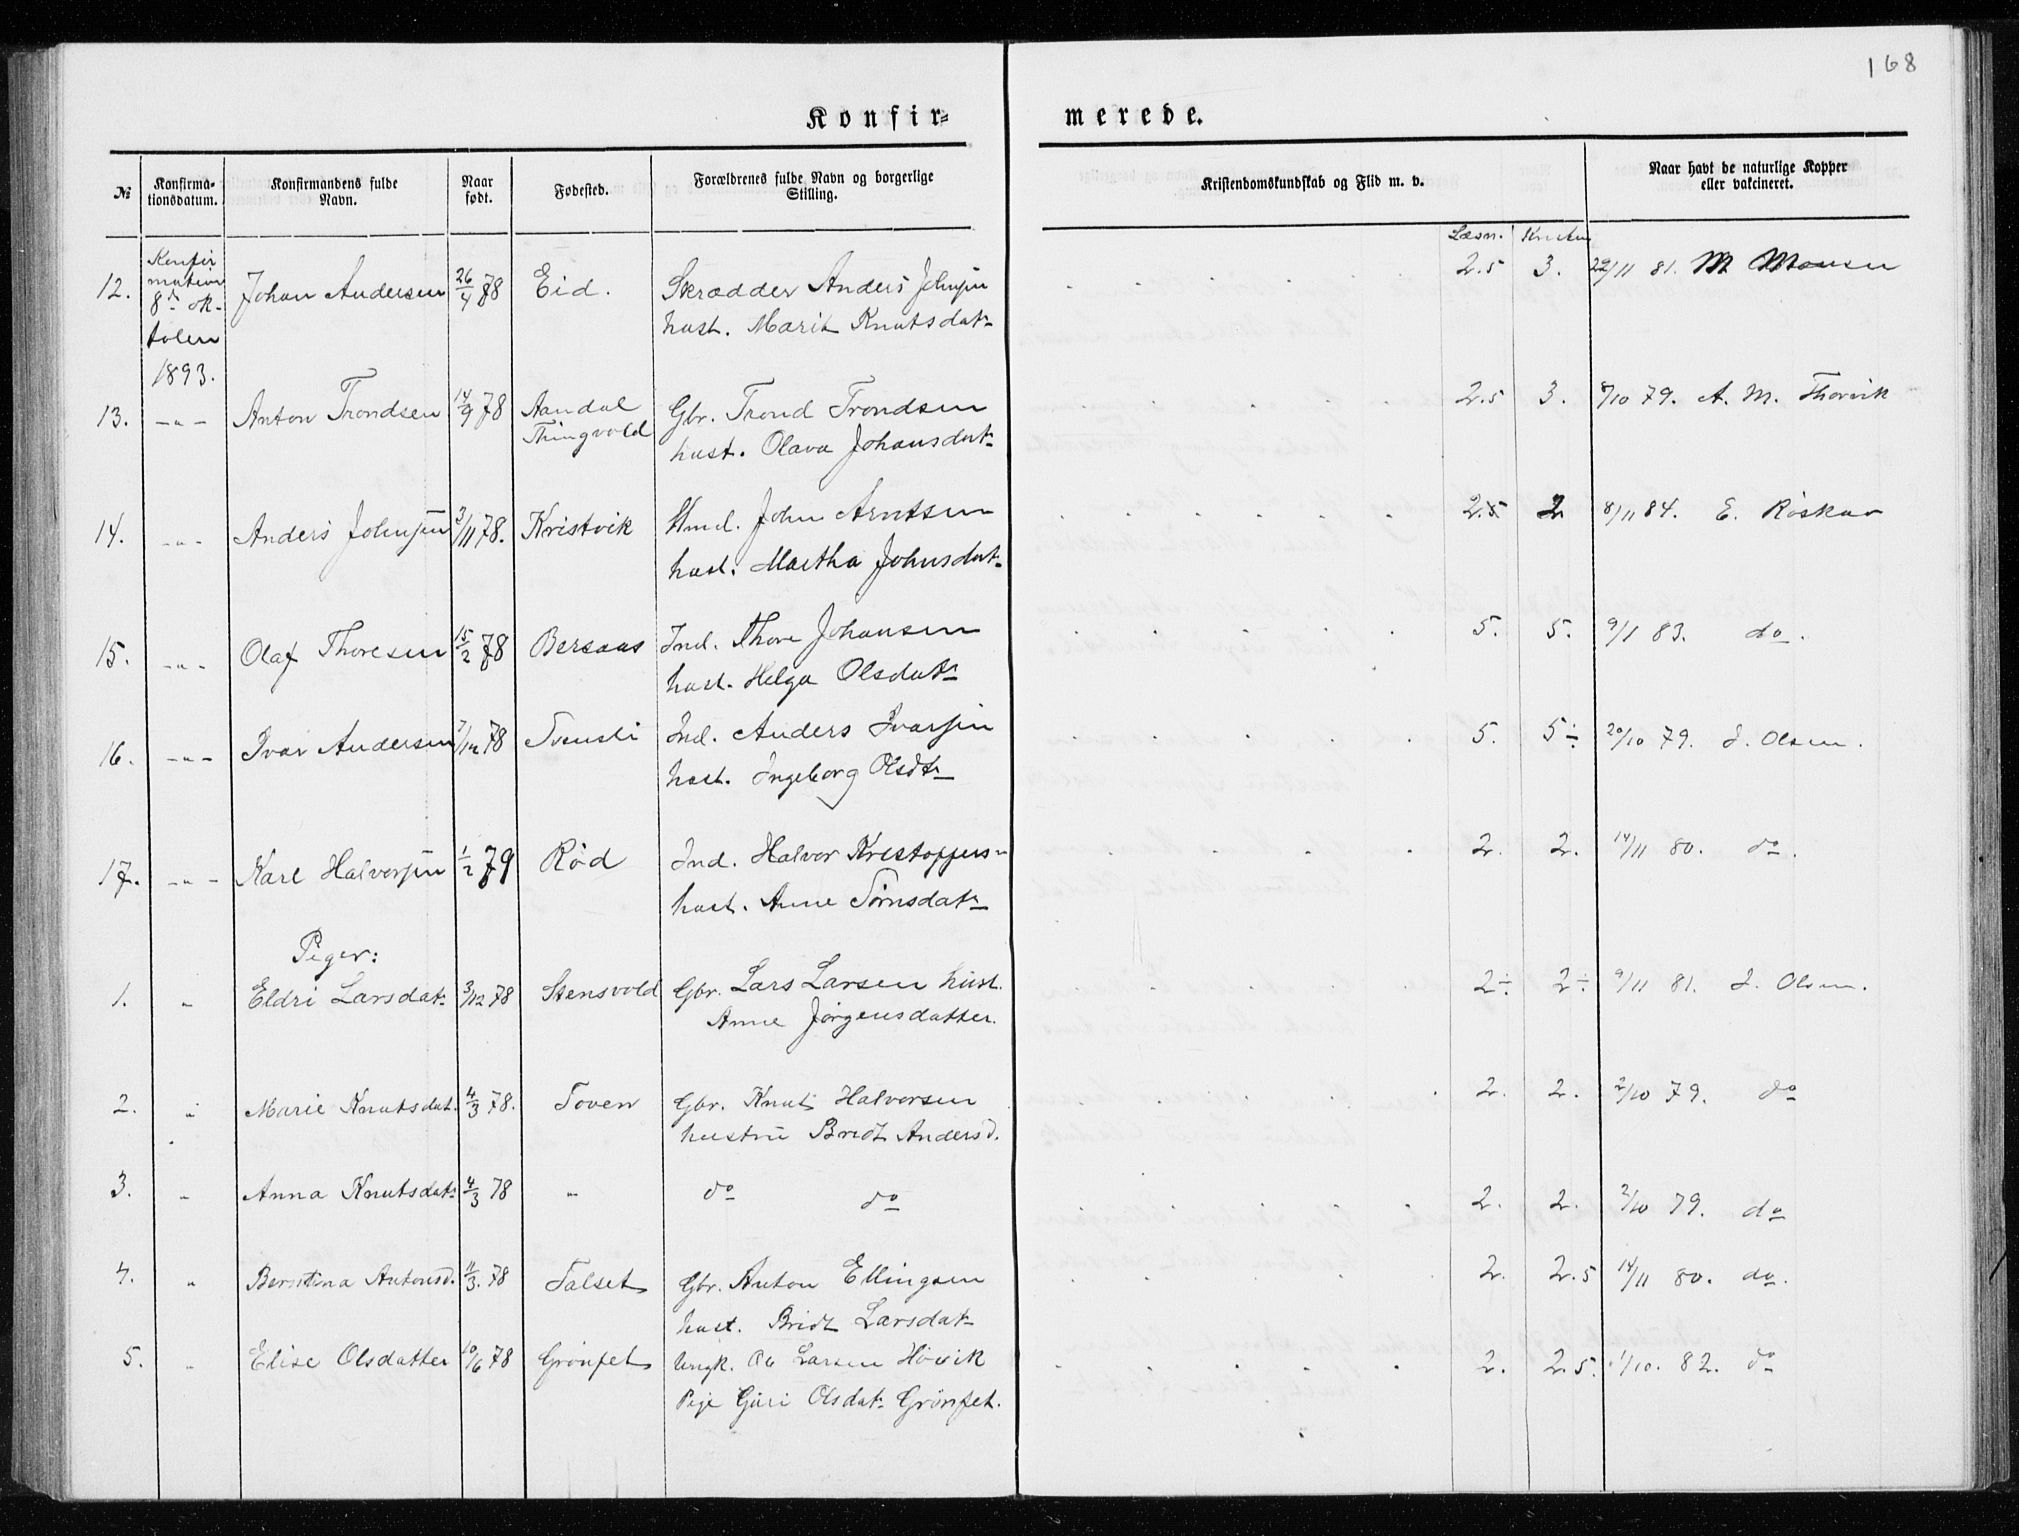 168
Konfir=
merede.
№
Konfirma-
tionsdatum.
Konfirmandens fulde
Navn.
Naar
født.
Fødested.
Forældrenes fulde Navn og borgerlige
Stilling.
Kristendomskundskab og Flid m. v.
Naar havt de naturlige Kopper
eller vakcineret.
Læsn.
12. Konfir Johan Andersen 26/4 78 Eid. Skrædder Anders Johnsen 2.5 3. 22/11 81. M
mation hust. Marit Knutsdatr
8de ok-
tober
1893.
13. -"- Anton Trondsen 14/9 78 Aandal Gbr. Trond Trondsen 2.5 3. 8/10 79. A. M. Thorvik
Thingvold hust. Olava Johansdatr
14. -"- Anders Johnsen 3/11 78. Kristvik Hmd. John Arntsen 2.5 2 8/11 84. E. Røskar
hust. Martha Johnsdatr
15. -"- Olaf Thoresen 15/2 78 Bersaas Ind. Thore Johansen 5. 5. 9/1 83. do.
hust. Helga Olsdatr
16. -"- Ivar Andersen 7/12 78 Svensli Ind. Anders Ivarsen 5. 5÷ 20/10 79. J. Olsen.
hust. Ingeborg Olsdtr
17. -"- Karl Halvorsen 1/2 79 Rød Ind. Halvor Kristoffers- 2. 2. 14/11 80. do.
hust. Anne Tørnsdatr
Piger:
1. " Eldri Larsdatr 3/12 78 Stensvold Gbr. Lars Larsen hust. 2÷ 2÷ 9/11 81. J. Olsen.
Anne Jørgensdatter.
2. " Marie Knutsdat. 4/3 78. Toven Gbr. Knut Halvorsen 2. 2. 2/10 79. do
hustru Bridt Andersd.
3. " Anna Knutsdatr 4/3 78 " do do 2. 2. 2/10 79. do
4. " Berntina Antonsd. 4/3. 78 Talset Gbr. Anton Ellingsen 2. 2.5 14/11 80. do.
hust. Bridt Larsdatr
5. " Elise Olsdatter 10/6 78 Grønset Ungk. Ole Larsen Høvik 2. 2.5. 1/10. 82. do
Pige Guri Olsdatr Grønset.